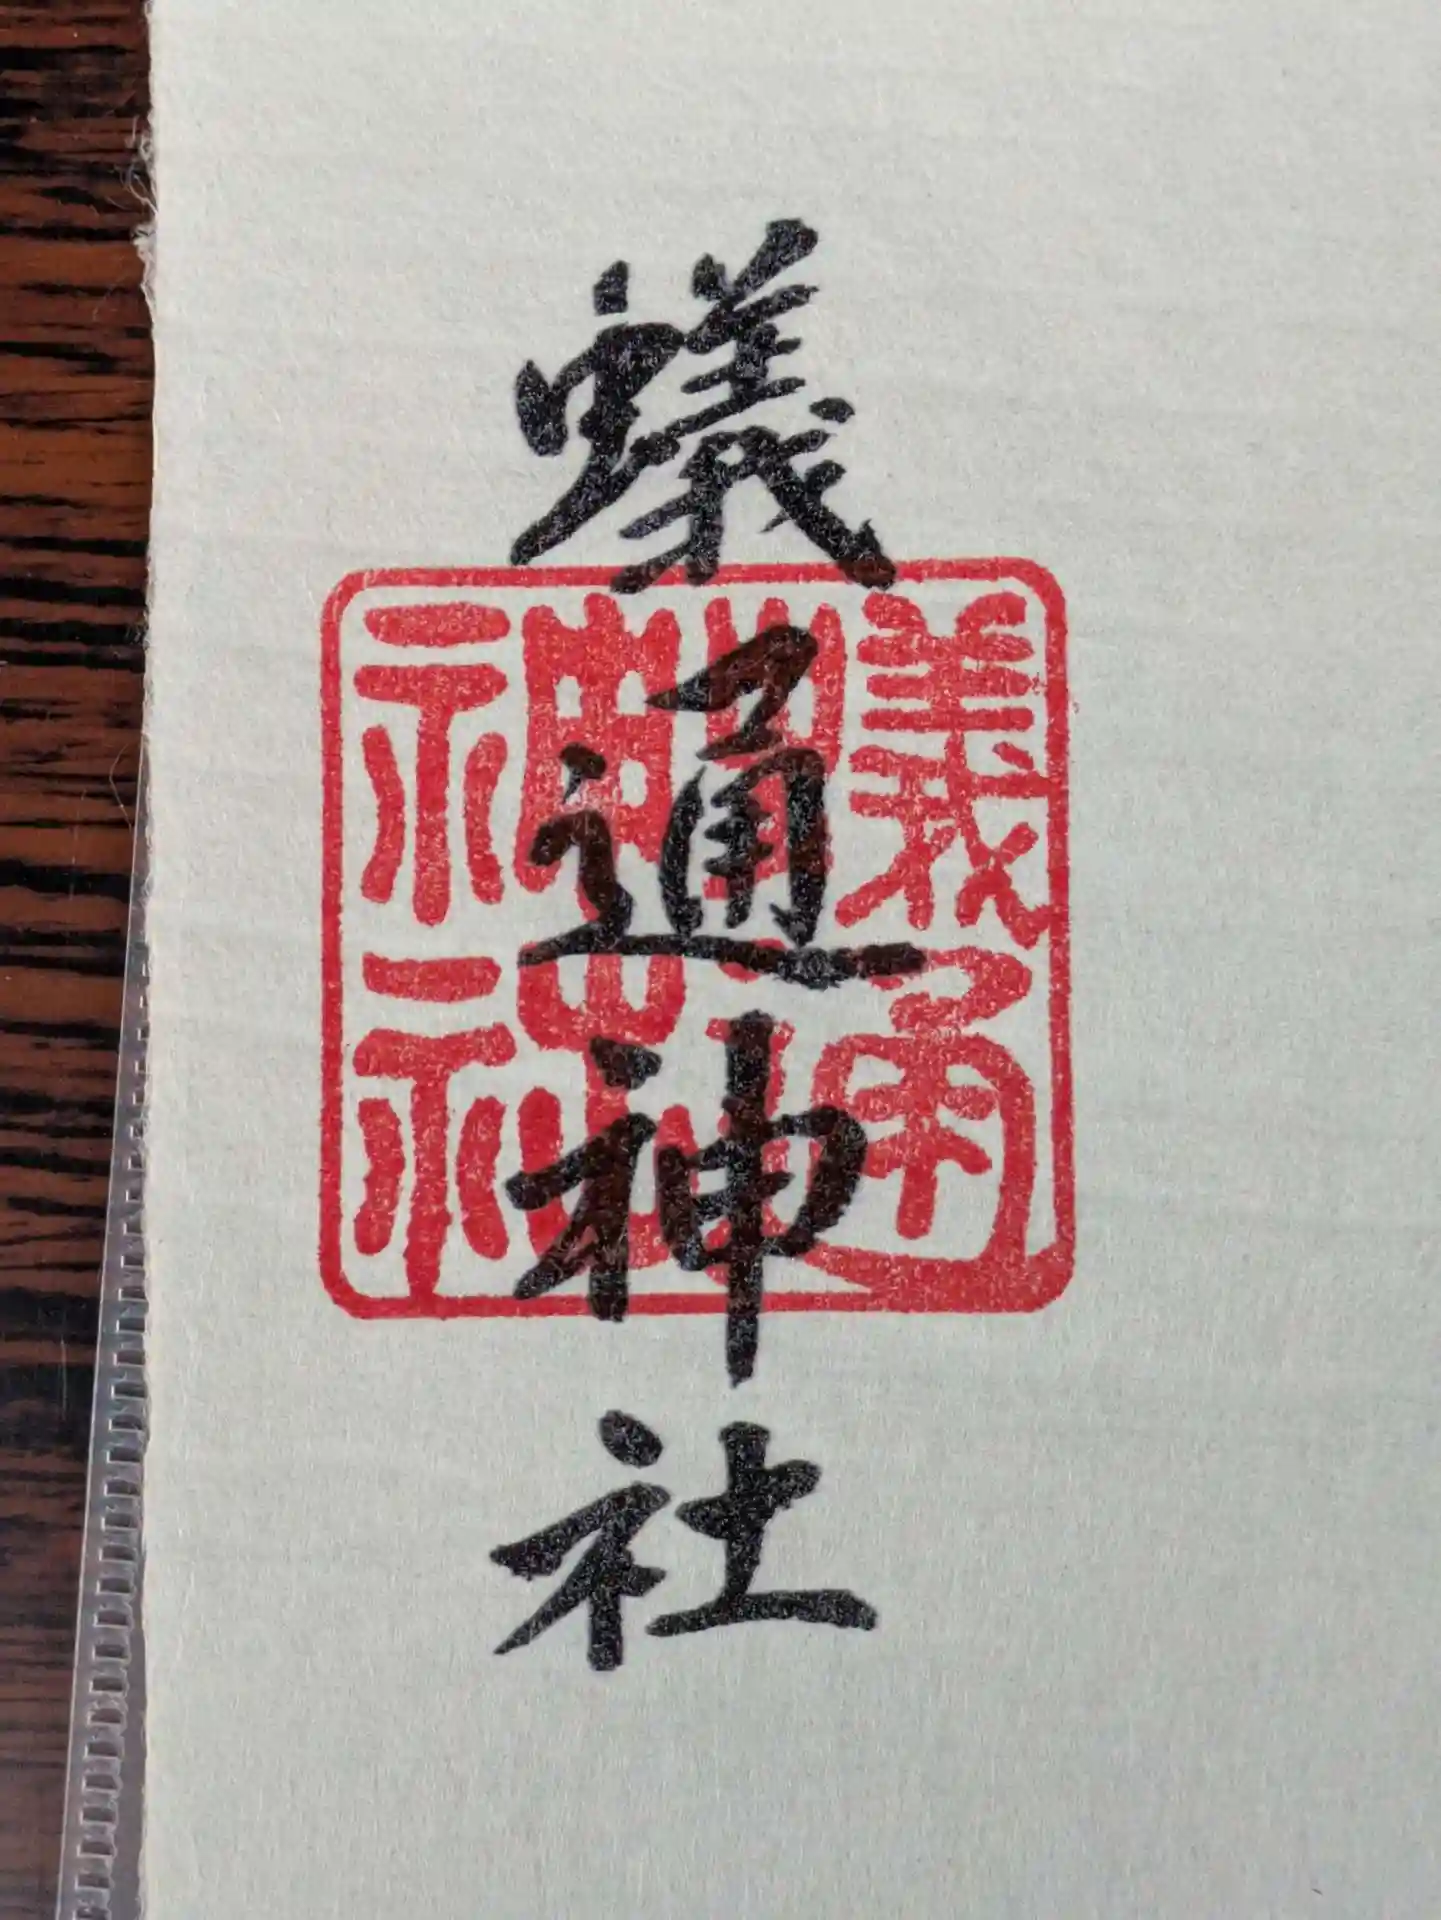 蟻通神社
蟻通
神社